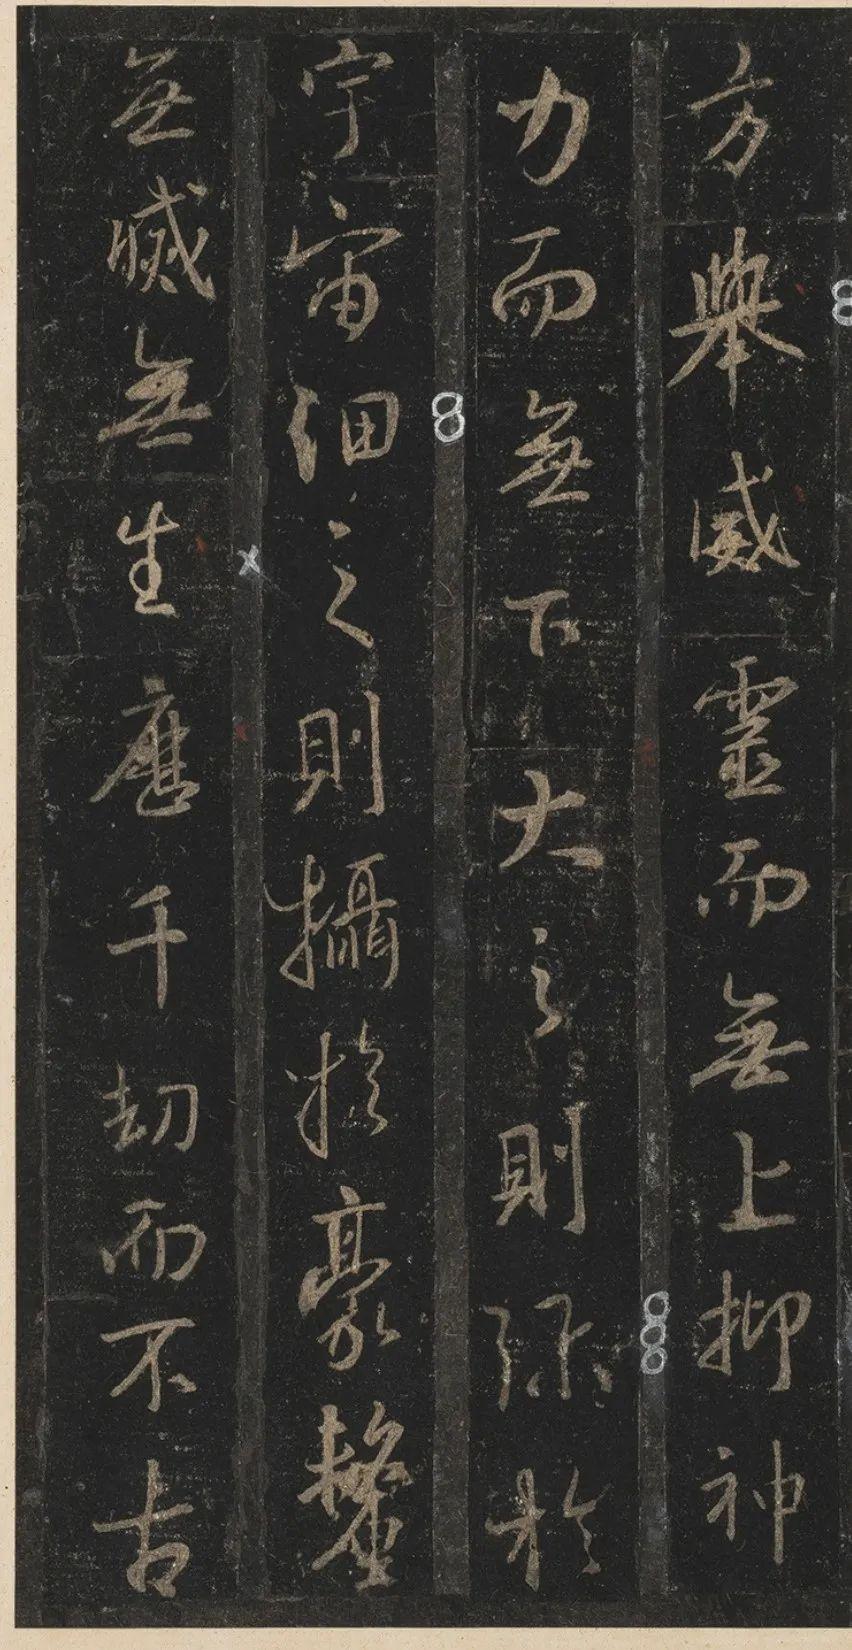 方舉威靈而無上抑神
力而無下大之則彌於
宇宙細之則攝於豪釐
無滅無生歷千劫而不古